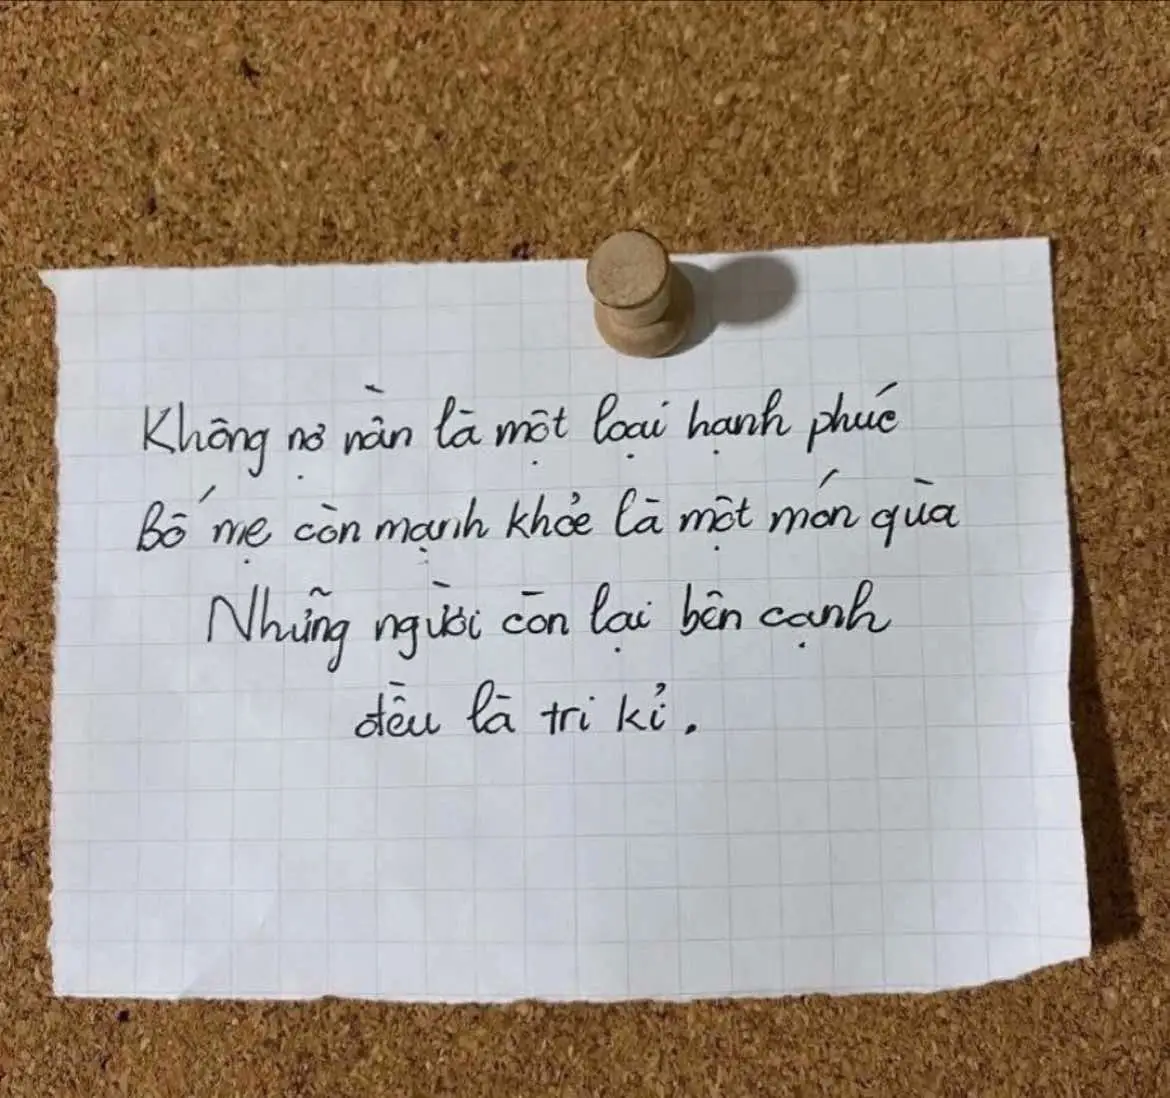 Không nợ nần là một loại hạnh phúc
Bố mẹ còn mạnh khỏe là một món quà
Những người còn lại bên cạnh
đều là tri kỉ.